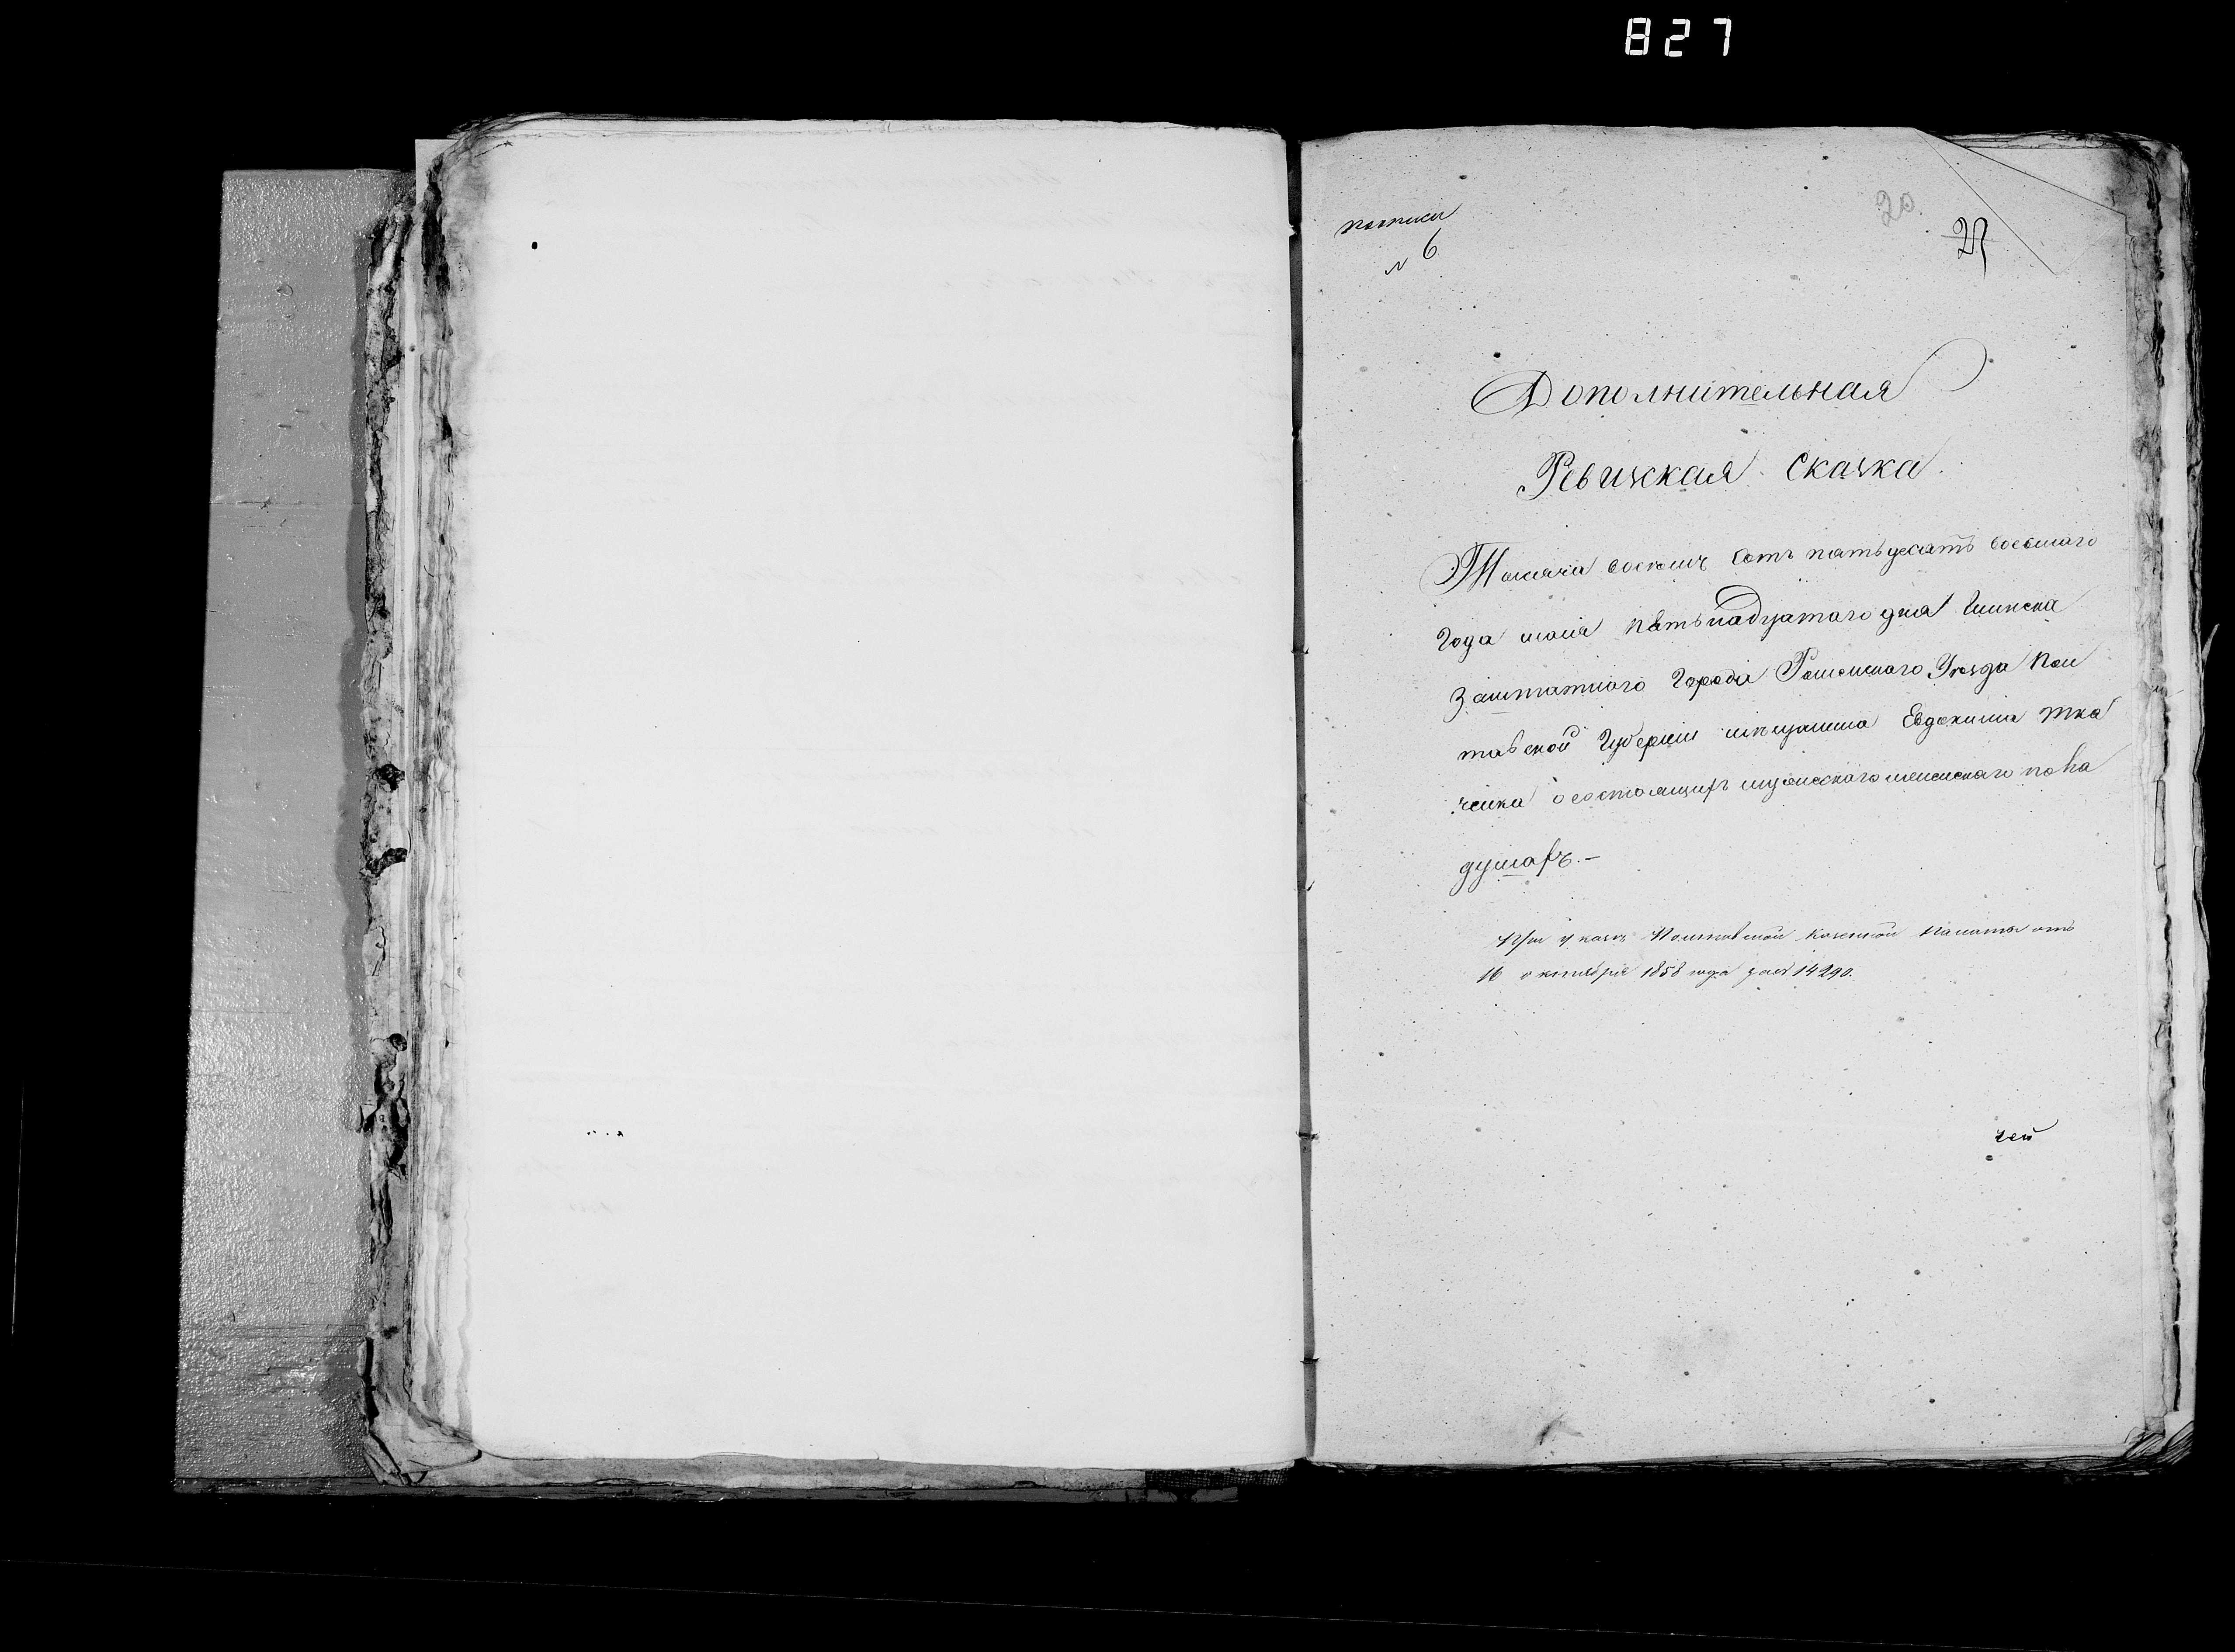 827
пописи
№ 6
20
27
Дополнительная
Ревизская Сказка.
Тысяча восемь сотъ пятьдесятъ восьмаго
Года июня пятьнадцатаго дня Глинска
Заштатнаго Города Роменскаго Уезда Пол
тавской Губерніи мещанина Евдокима Тка
ченка о состоящихъ мужескаго женскаго пола
душахъ.-
При указе Полтавской Казенной Палаты отъ
16 октября 1858 года за № 14290.
чей